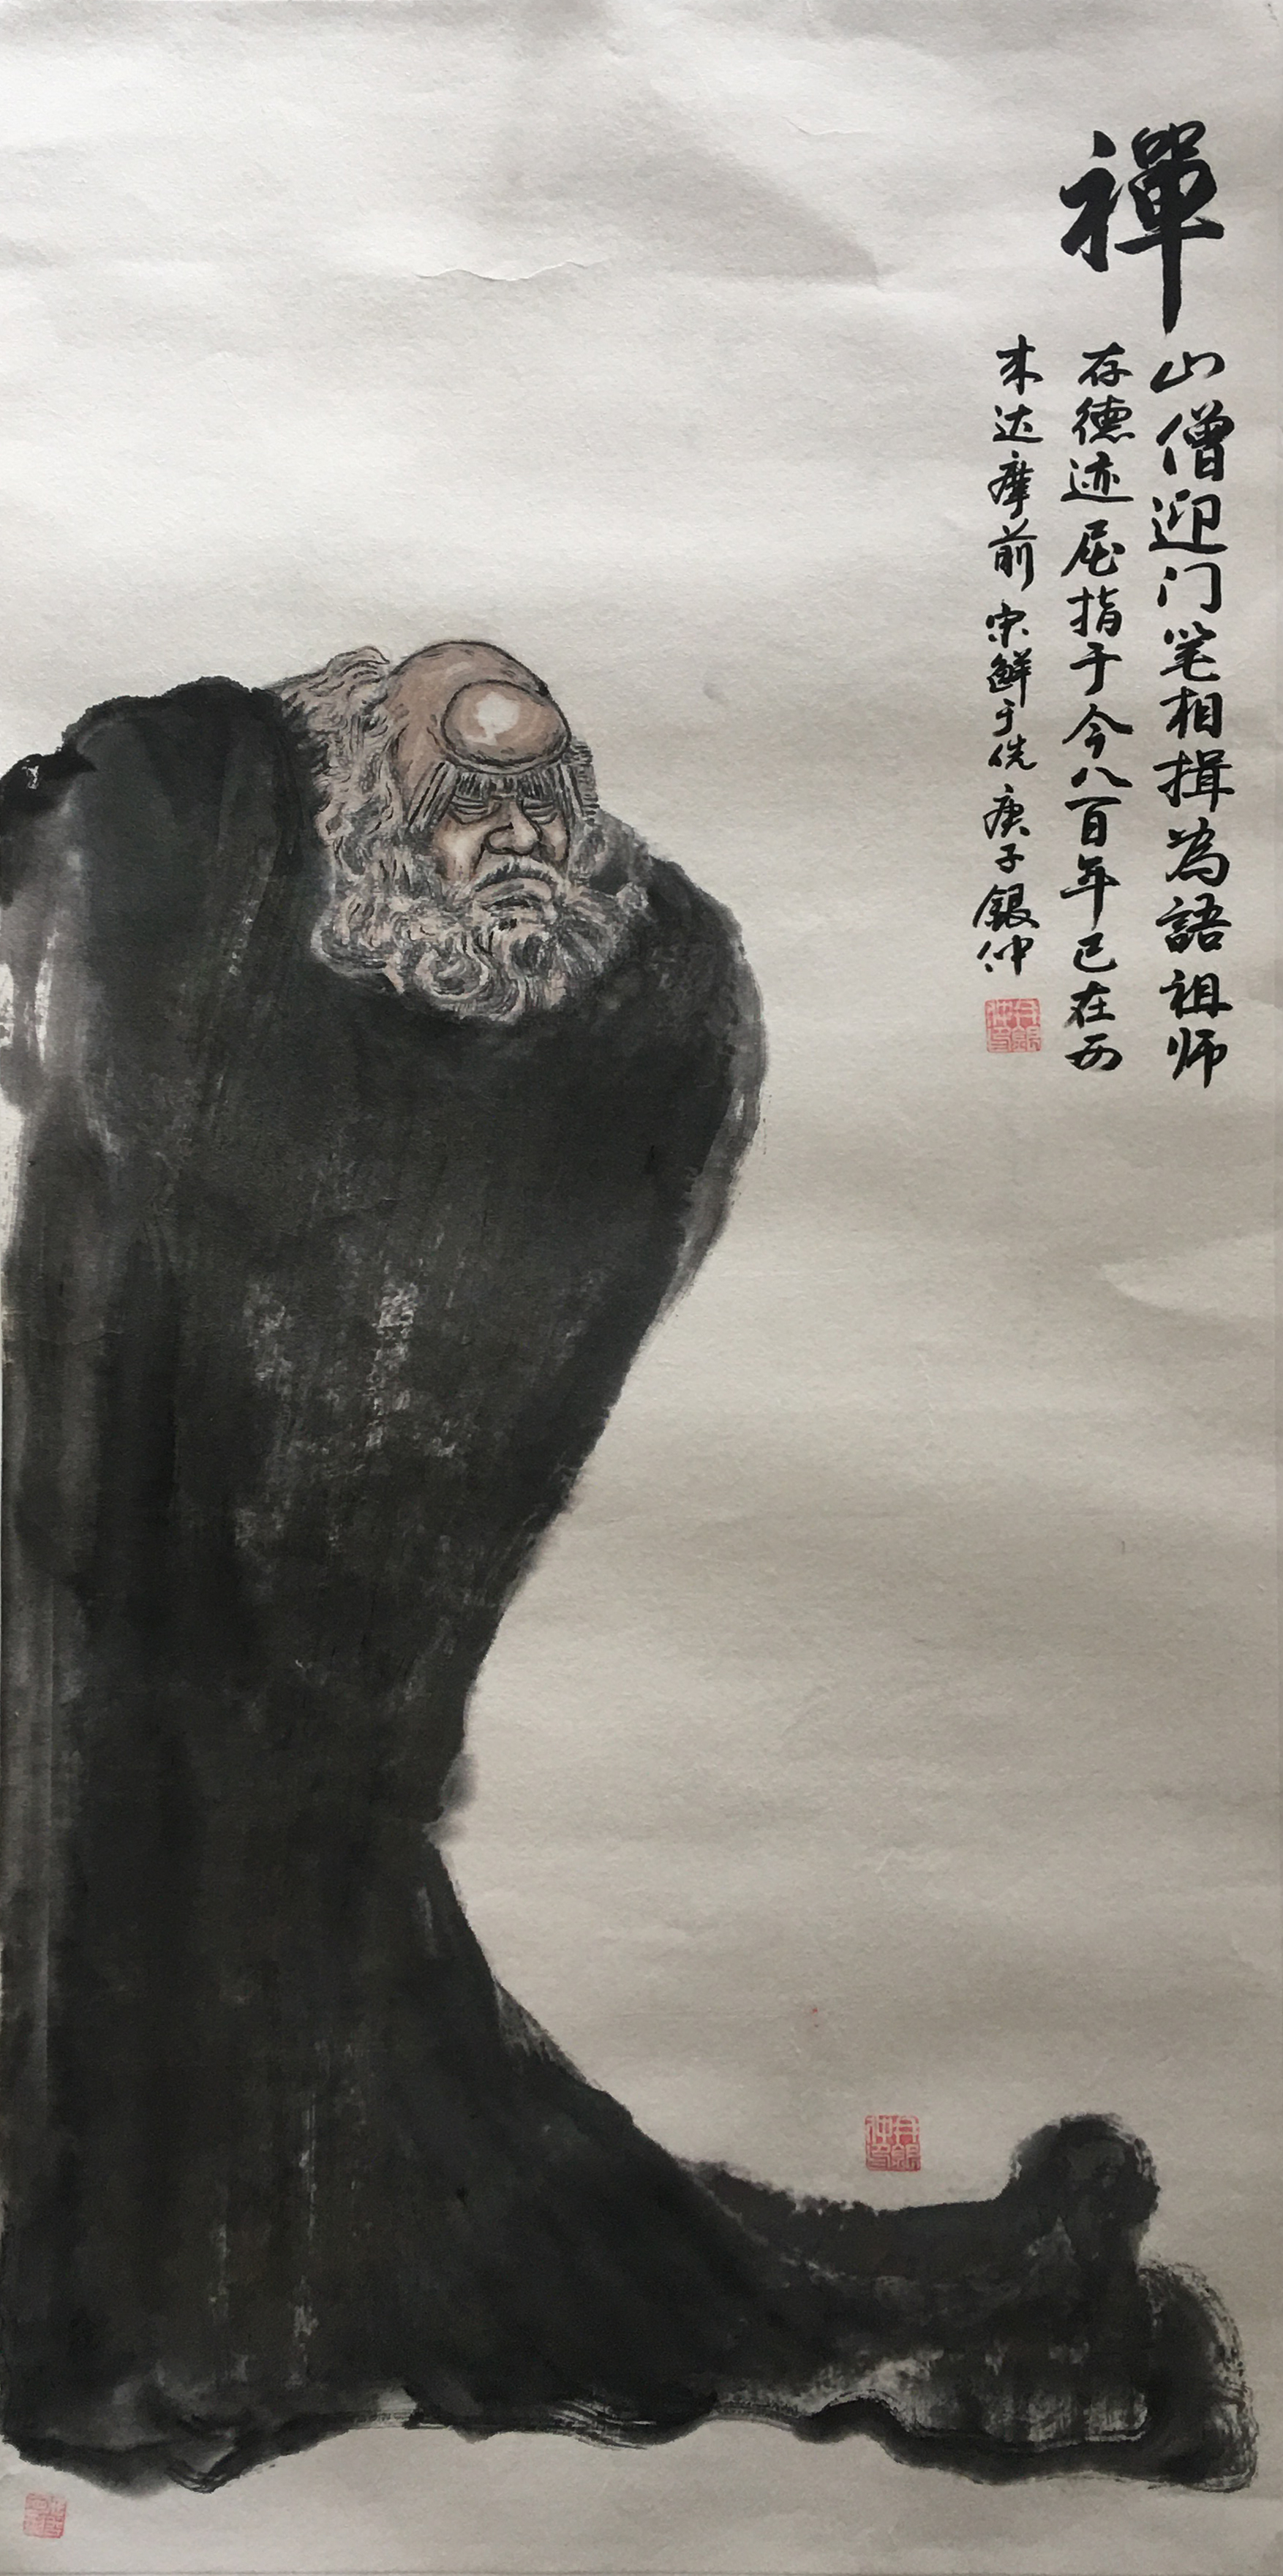 禪
山僧迎门笔相揖為語祖师
存德迹屈指于今八百年已在西
来达摩前 宋鲜于侁 庚子銀仲